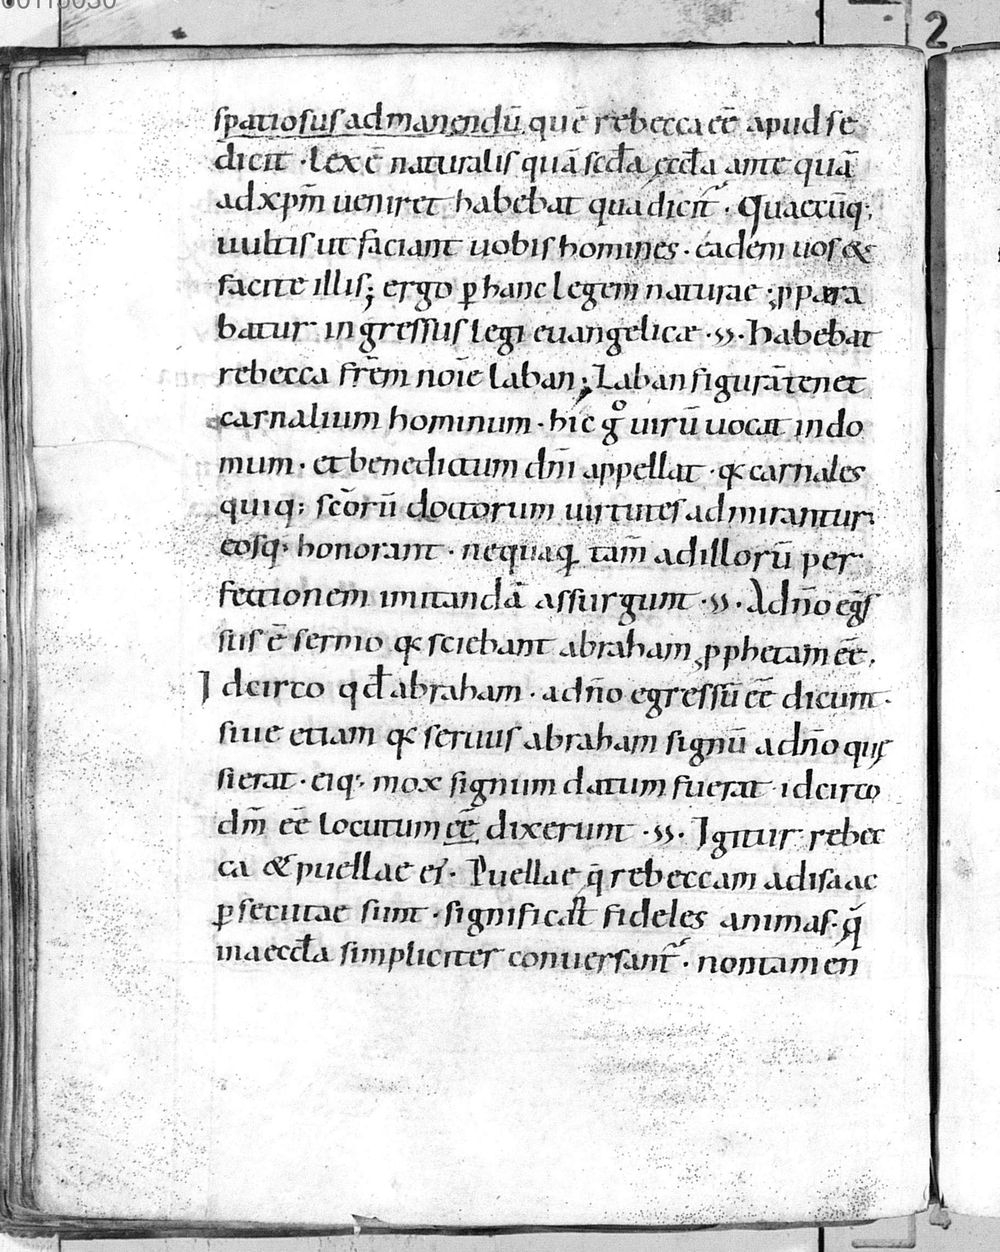 spatiosus ad manendū quē rebecca eē apud se
dicit · lex ē naturalis quā scďa eccła ante quā
ad xpm̄ ueniret habebat qua dicit᷑ · Quaecūq;
uultis ut faciant uobis homines · eadem uos &
facite illis; ergo ꝑ hanc legem naturae ; ꝓpara
batur ingressus legi euangelicæ ·,,· habebat
rebecca frēm noīe laban ; Laban figurā tenet
carnalium hominum · hic gͦ uirū uocat in do
mum · et benedictum dn̄i appellat · qꝫ carnales
quiq; scōrū doctorum uirtutes admirantur
eosq; honorant · nequaꝗ tam̄ ad illorū per
fectionem imitandā assurgunt ·,,· A dn̄o egs
sus ē sermo qꝫ sciebant abraham ꝓphetam eē.
Idcirco qđ abraham · a dn̄o egressū eē dicunt ·
siue etiam qꝫ seruus abraham signū a dn̄o quę
sierat · eiq; mox signum datum fuerat · idcirco
dn̄i eē locutum eē dixerunt ·,,· Igitur rebec
ca & puellae eī · Puellae q̄ rebeccam ad isaac
ꝑsecutae sunt · significaꞇ̄ fideles animas · q̄
in aeccła simpliciter conuersant᷑ · non tamen